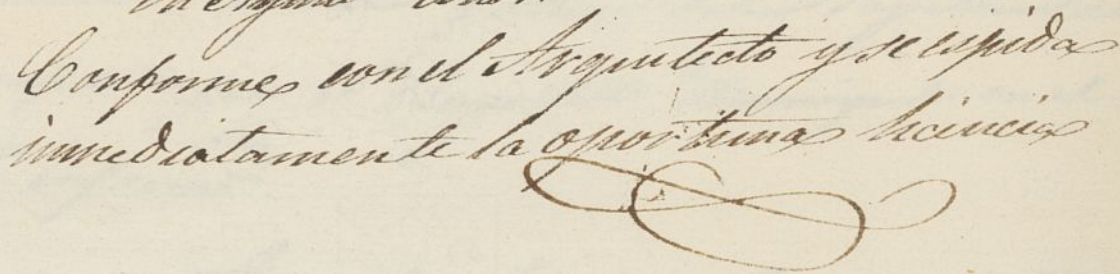 Conforme con el Arquitecto y se espida
immediatamente la oportuna licencia